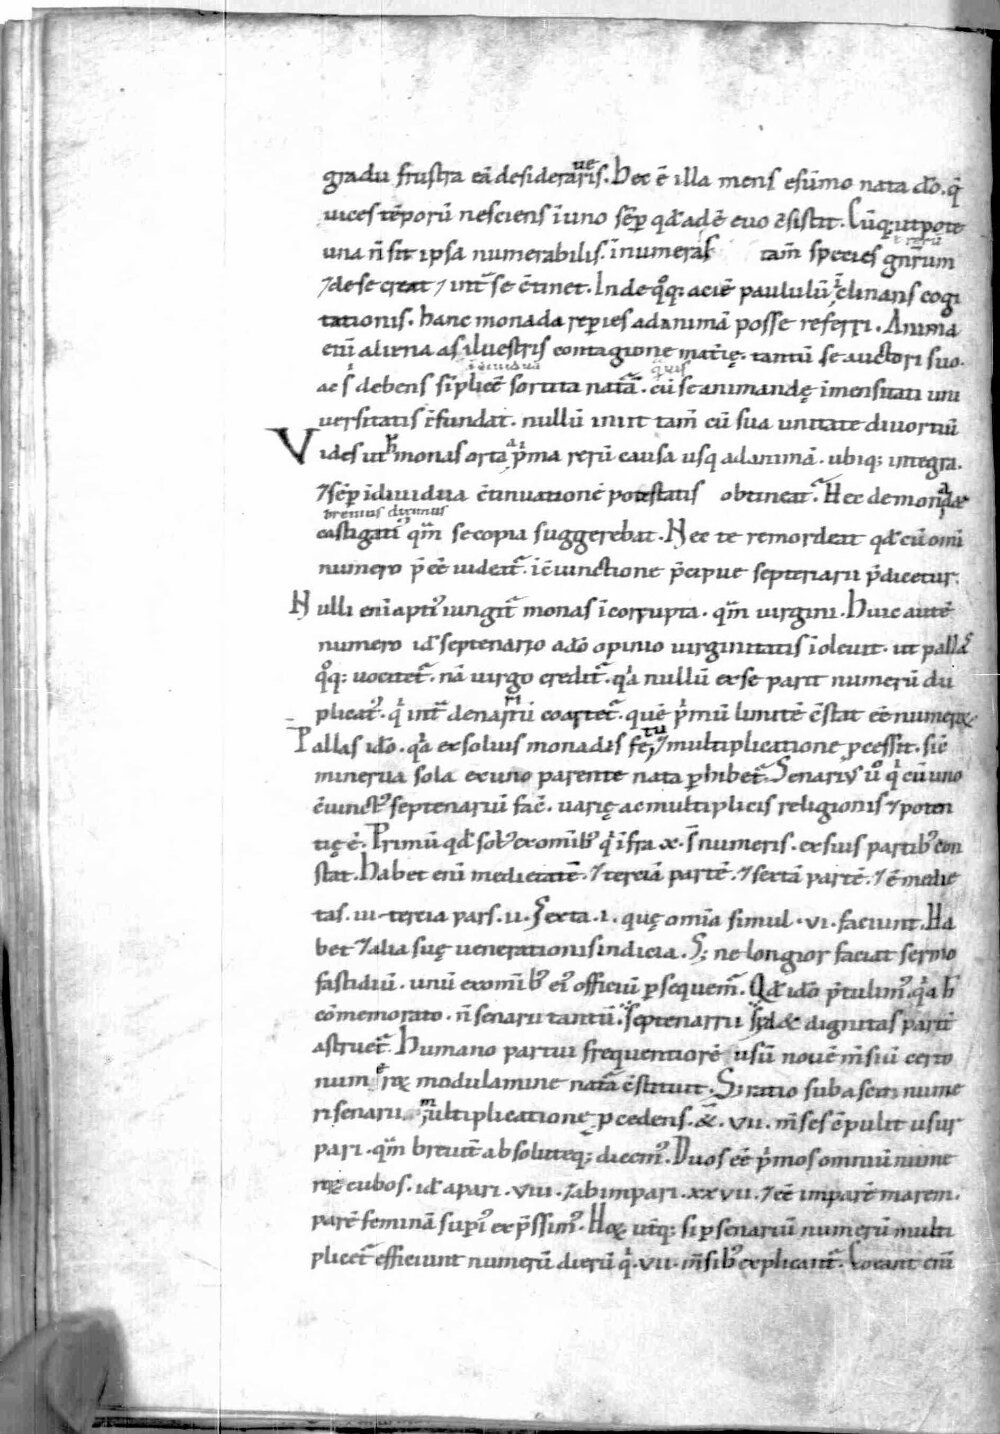 gradu frustra eā desideraris. ue Hec ē illa mens e sūmo nata dō. q̄
uices tēporū nesciens ī uno sēp qd̄ adē euo c̄sistit. Cūq; utpote
una n̄ sit ipsa numerabilis. īnumeras tam̄ species gn̄rum
⁊ de se creat ⁊ int̄ se c̄tinet. Inde qͦq; aciē paululū c̄linans cogi
tationis. hanc monada repies ad animā posse referri. Anima
eni aliena a siluestris contagione materię. tantū se auctori suo.
ac s̓ debens simplicē sortita natā. cū se animandę īmensitati uni
uersitatis c̄fundat. nullū init tam̄ cū sua unitate diuortiū
Vides ut h̄ monas orta a p̓ma rerū causa usq ad animā. ubiq; integra.
⁊ sēp īdiuidua c̄tinuationē potestatis obtineat. Hec de monade
breuius diximus
castigatiꝰ qm̄ se copia suggerebat. Nec te remordeat qd̄ cū omī
numero p̄eē uideat. ī c̄iunctione p̄cipue septenarii p̄dicetur.
Nulli enī aptiꝰ iungit̄ monas īcorrupta. qm̄ uirgini. Huic autē
numero id̄ septenario adō opinio uirginitatis īoleuit. ut pallas
qͦq; uocitet̄. nā uirgo credit̄. qa nullū ex se parit numerū du
plicatꝰ. q̓ int̄ denariū coartet̄. quē p̓mū limitē c̄stat eē numeroꝝ
Pallas idō. qa ex solius monadis fetu ⁊ multiplicatione pcessit. sic̄
minerua sola ex uno parente nata phibet̄. Senariꝰ uͦ q̓ cū uno
c̄iunctꝰ septenariū fac̄. uarię ac multiplicis religionis ⁊ poten
tię ē. Primū qd̄ solꝰ ex omībꝰ q̓ īfra .x. s̄ numeris. ex suis partibꝰ con
stat. Habet enī medietatē. ⁊ terciā partē. ⁊ sextā partē. ⁊ ē medie
tas .iii. tercia pars .ii. Sexta .i. quę omīa simul .vi. faciunt. Ha
bet ⁊ alia suę uenerationis indicia. S; ne longior faciat sermo
fastidiū. unū ex omībꝰ eiꝰ officiū p sequem̄. Qd̄ idō p̄tulimꝰ. qa h̄
c̄memorato. n̄ senarii tantū. septenarii dignitas parit̄
astruet̄. Humano partui frequentiorē usū nouē m̄siū certo
numeroꝝ modulamine natā c̄stituit. S; ratio sub asciti nume
ri senarii multiplicatione pcedens. & .vii. m̄ses c̄pulit usur
pari. qm̄ breuit̄ absoluteq; dicemꝰ. Duos eē p̓mos omniū nume
roꝝ cubos. id̄ a pari .viii. ⁊ ab impari .xxvii. ⁊ eē imparē marem.
parē feminā supiꝰ exp̄ssimꝰ. Hoꝝ ut̓q; si p senariū numerū multi
plicet̄ efficiunt numerū dierū q̓ .vii. m̄sibꝰ explicant̄. Coeant enī